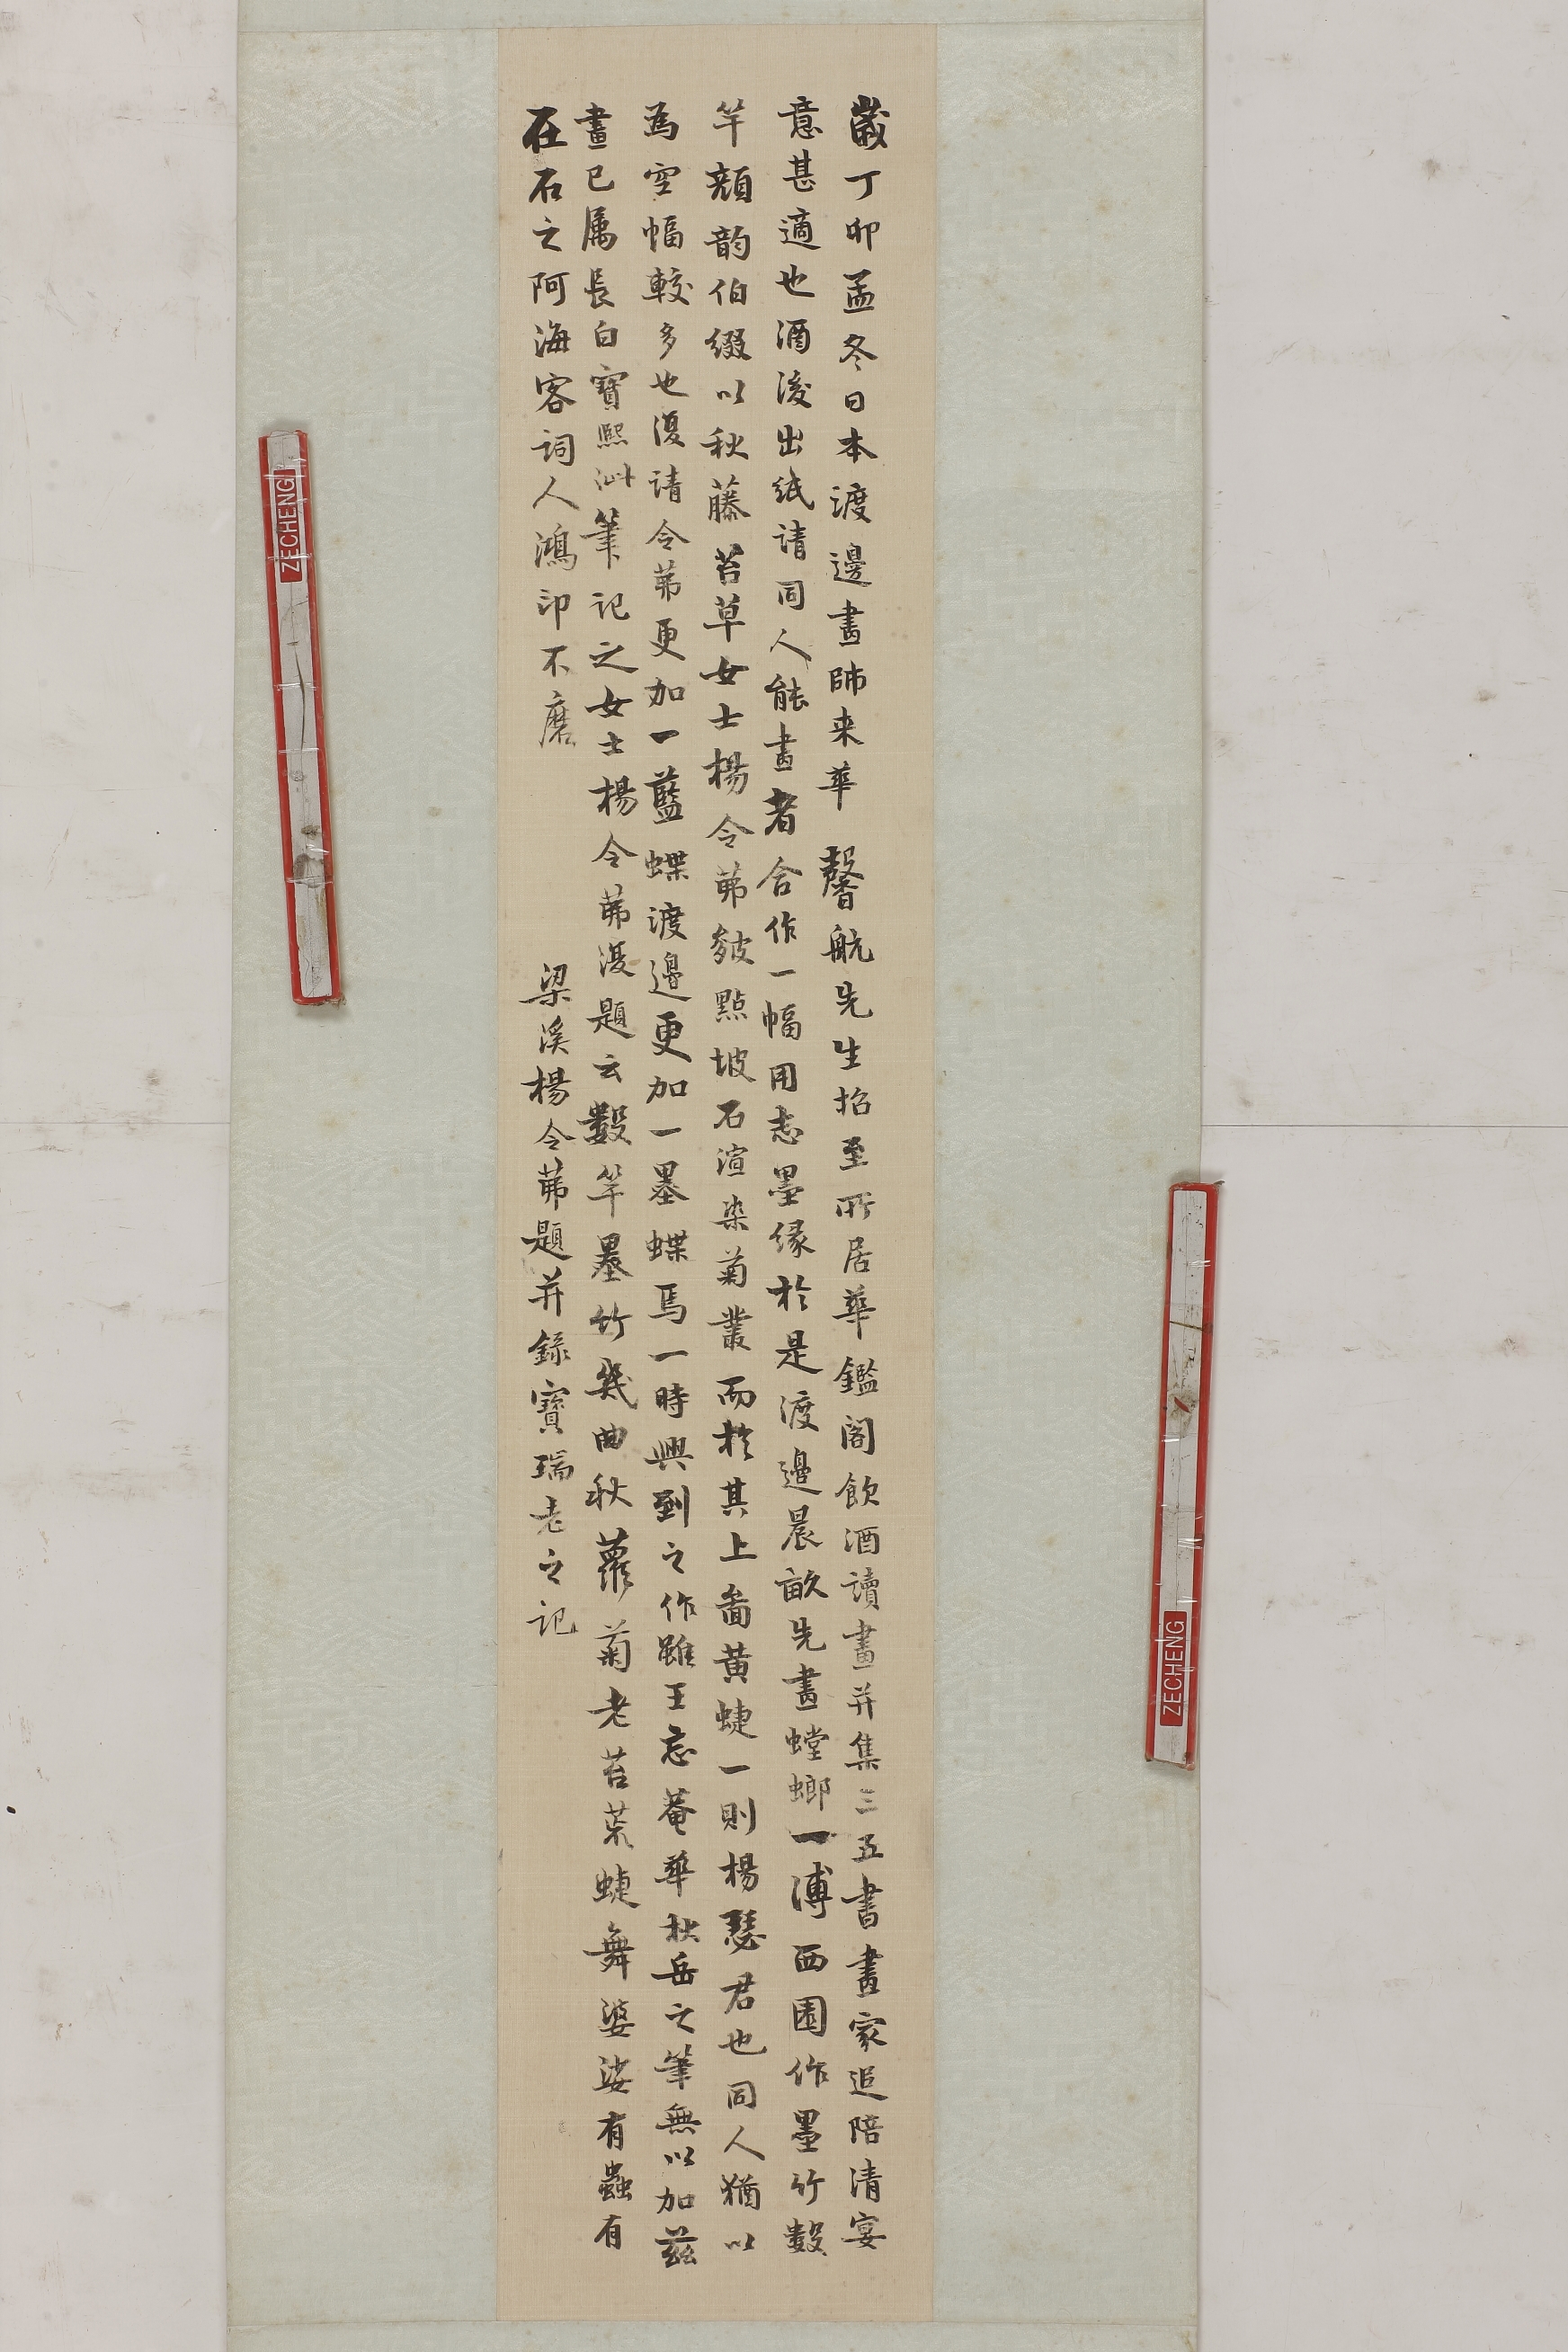 歲丁卯孟冬日本渡邊畫師来華 馨航先生招至所居華鑑閣飲酒讀畫并集三五書畫家追陪清宴
意甚適也酒後出紙請同人能畫者合作一幅用志墨緣於是渡邊晨畝先畫螳螂一溥西園作墨竹數
竿顏韵伯綴以秋藤苔草女士楊令茀皴點坡石渲染菊叢而於其上畫黃蜨一則楊瑟君也同人猶以
為空幅較多也復請令茀更加一藍蝶渡邊更加一墨蝶焉一時興到之作雖王忘菴華秋岳之筆無以加茲
畫已属長白寶熙沘筆記之女士楊令茀復題云數竿墨竹幾曲秋蘿菊老苔荒蜨舞婆娑有蟲有
在石之阿海客詞人鴻印不磨 梁溪楊令茀題并錄寶瑞老之記
ZECHENG
ZECHENG